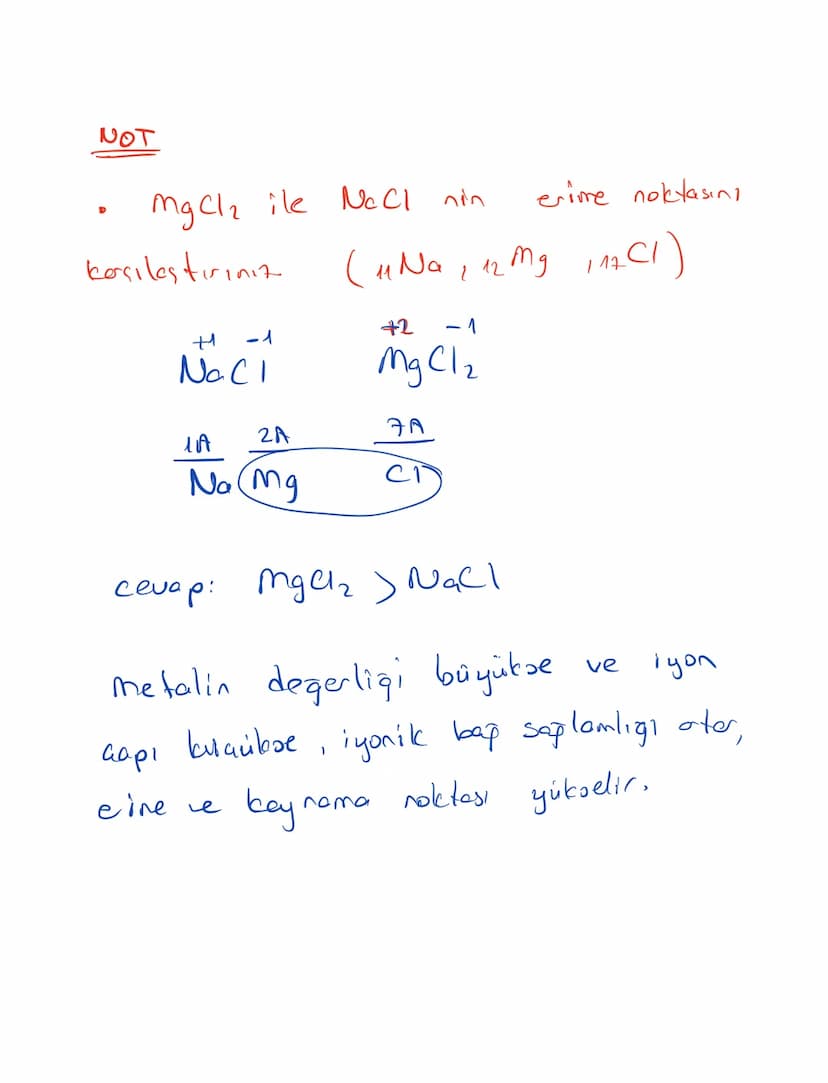 NOT
• MgCl₂ ile NaCl nin erime noktasını
karşılaştırınız (₁₁Na, ₁₂Mg, ₁₇Cl)
+1 -1 +2 -1
NaCl MgCl₂
1A 2A 7A
Na Mg Cl
cevap: MgCl₂ > NaCl
Metalin değerliği büyükse ve iyon
çapı küçükse, iyonik bağ sağlamlığı artar,
erime ve kaynama noktası yükselir.